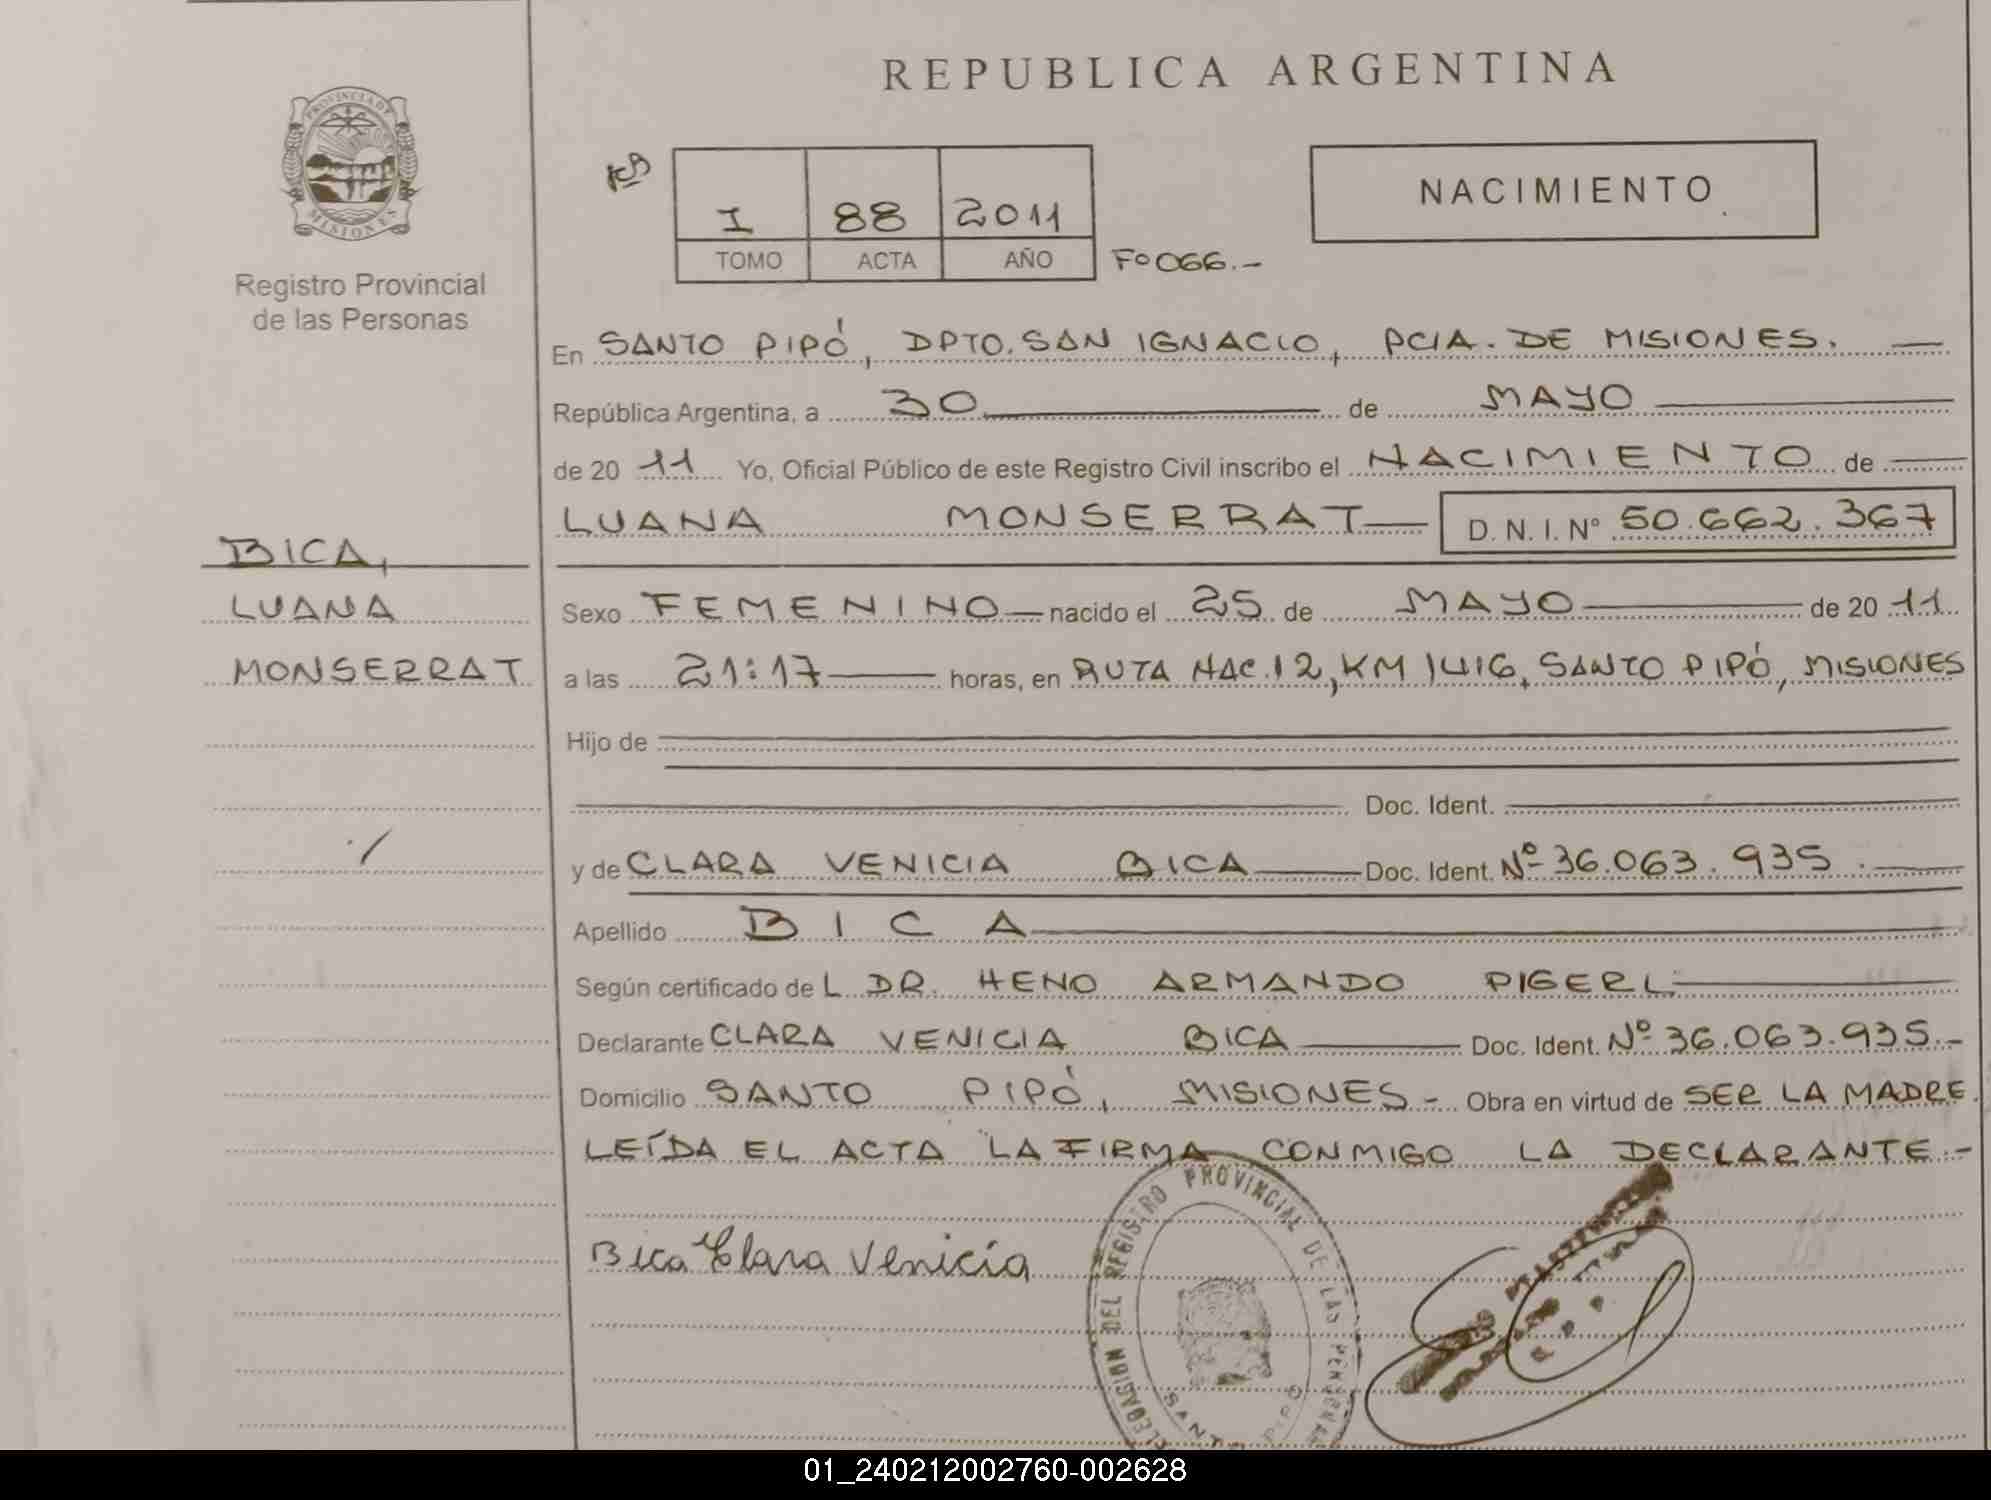 REPUBLICA ARGENTINA
PROVINCIA DE
MISIONES
Registro Provincial
de las Personas
I 88 2011
TOMO ACTA AÑO
Fº 066.-
NACIMIENTO
En SANTO PIPÓ, DPTO. SAN IGNACIO, PCIA. DE MISIONES.
República Argentina, a 30 de MAYO
de 20 11 Yo, Oficial Público de este Registro Civil inscribo el NACIMIENTO de
LUANA MONSERRAT D. N. I. Nº 50.662.367
BICA,
LUANA
MONSERRAT
Sexo FEMENINO nacido el 25 de MAYO de 20 11
a las 21:17 horas, en RUTA NAC. 12, KM 1416, SANTO PIPÓ, MISIONES
Hijo de
Doc. Ident.
y de CLARA VENICIA BICA Doc. Ident. Nº 36.063.935.
Apellido BICA
Según certificado de L DR. HENO ARMANDO PIGERL.
Declarante CLARA VENICIA BICA Doc. Ident. Nº 36.063.935.-
Domicilio SANTO PIPÓ, MISIONES- Obra en virtud de SER LA MADRE.
LEÍDA EL ACTA LA FIRMA CONMIGO LA DECLARANTE.-
Bica Clara Venicia
DEL REGISTRO PROVINCIAL DE LAS
SANTO PIPO
01_240212002760-002628